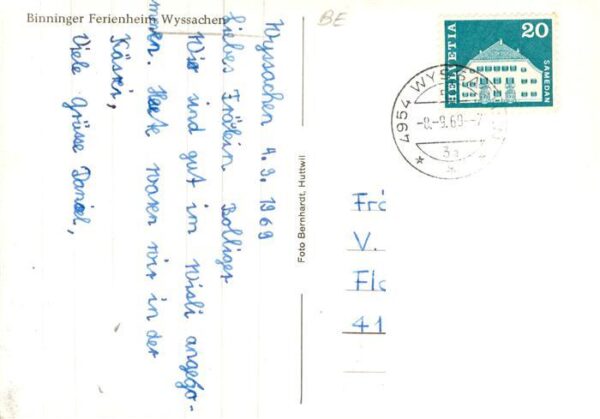 Binninger Ferienheim Wyssachen
BE
Wyssachen 4.9.1969
Liebes Fröhlein Bolliger
Wir sind gut im Wisli angego-
mmen. Heute waren wir in der
Käserei,
Viele Grüsse Daniel,
Foto Bernhardt, Huttwil
HELVETIA
20
SAMEDAN
4954 WYSS
-8.-9.69.-7
3a
Frö
V.
Flo
41